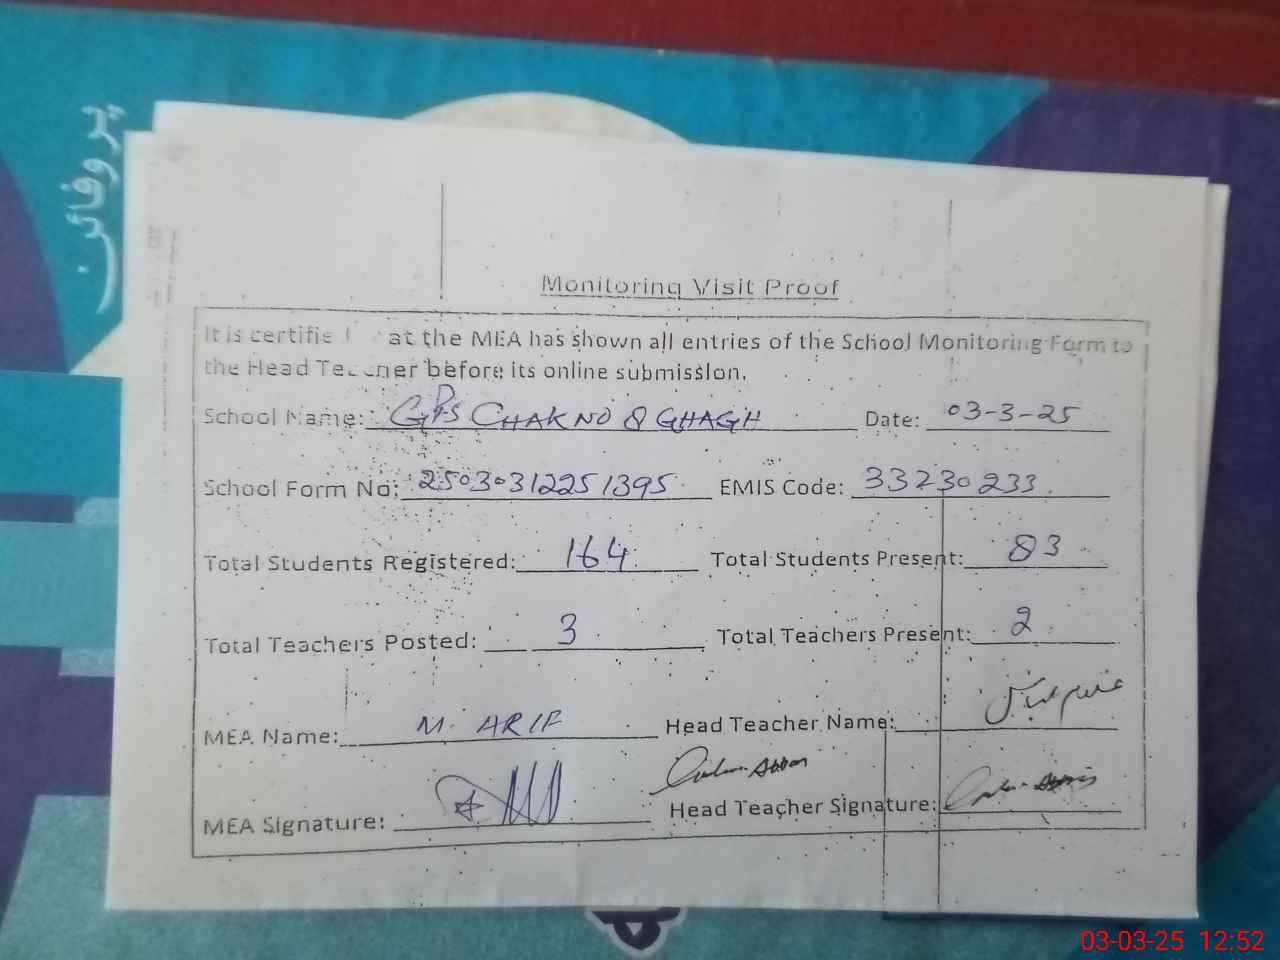 پروفائل
Monitoring Visit Proof
It is certifie at the MEA has shown all entries of the School Monitoring Form to
the Head Teacher before its online submission.
School Name: GPS CHAK NO 8 GHAGH Date: 03-3-25
School Form No: 2503031225 1395 EMIS Code: 33230233
Total Students Registered: 164 Total Students Present: 83
Total Teachers Posted: 3 Total Teachers Present: 2
MEA Name: M. ARIF Head Teacher Name:
MEA Signature: Head Teacher Signature:
03-03-25 12:52